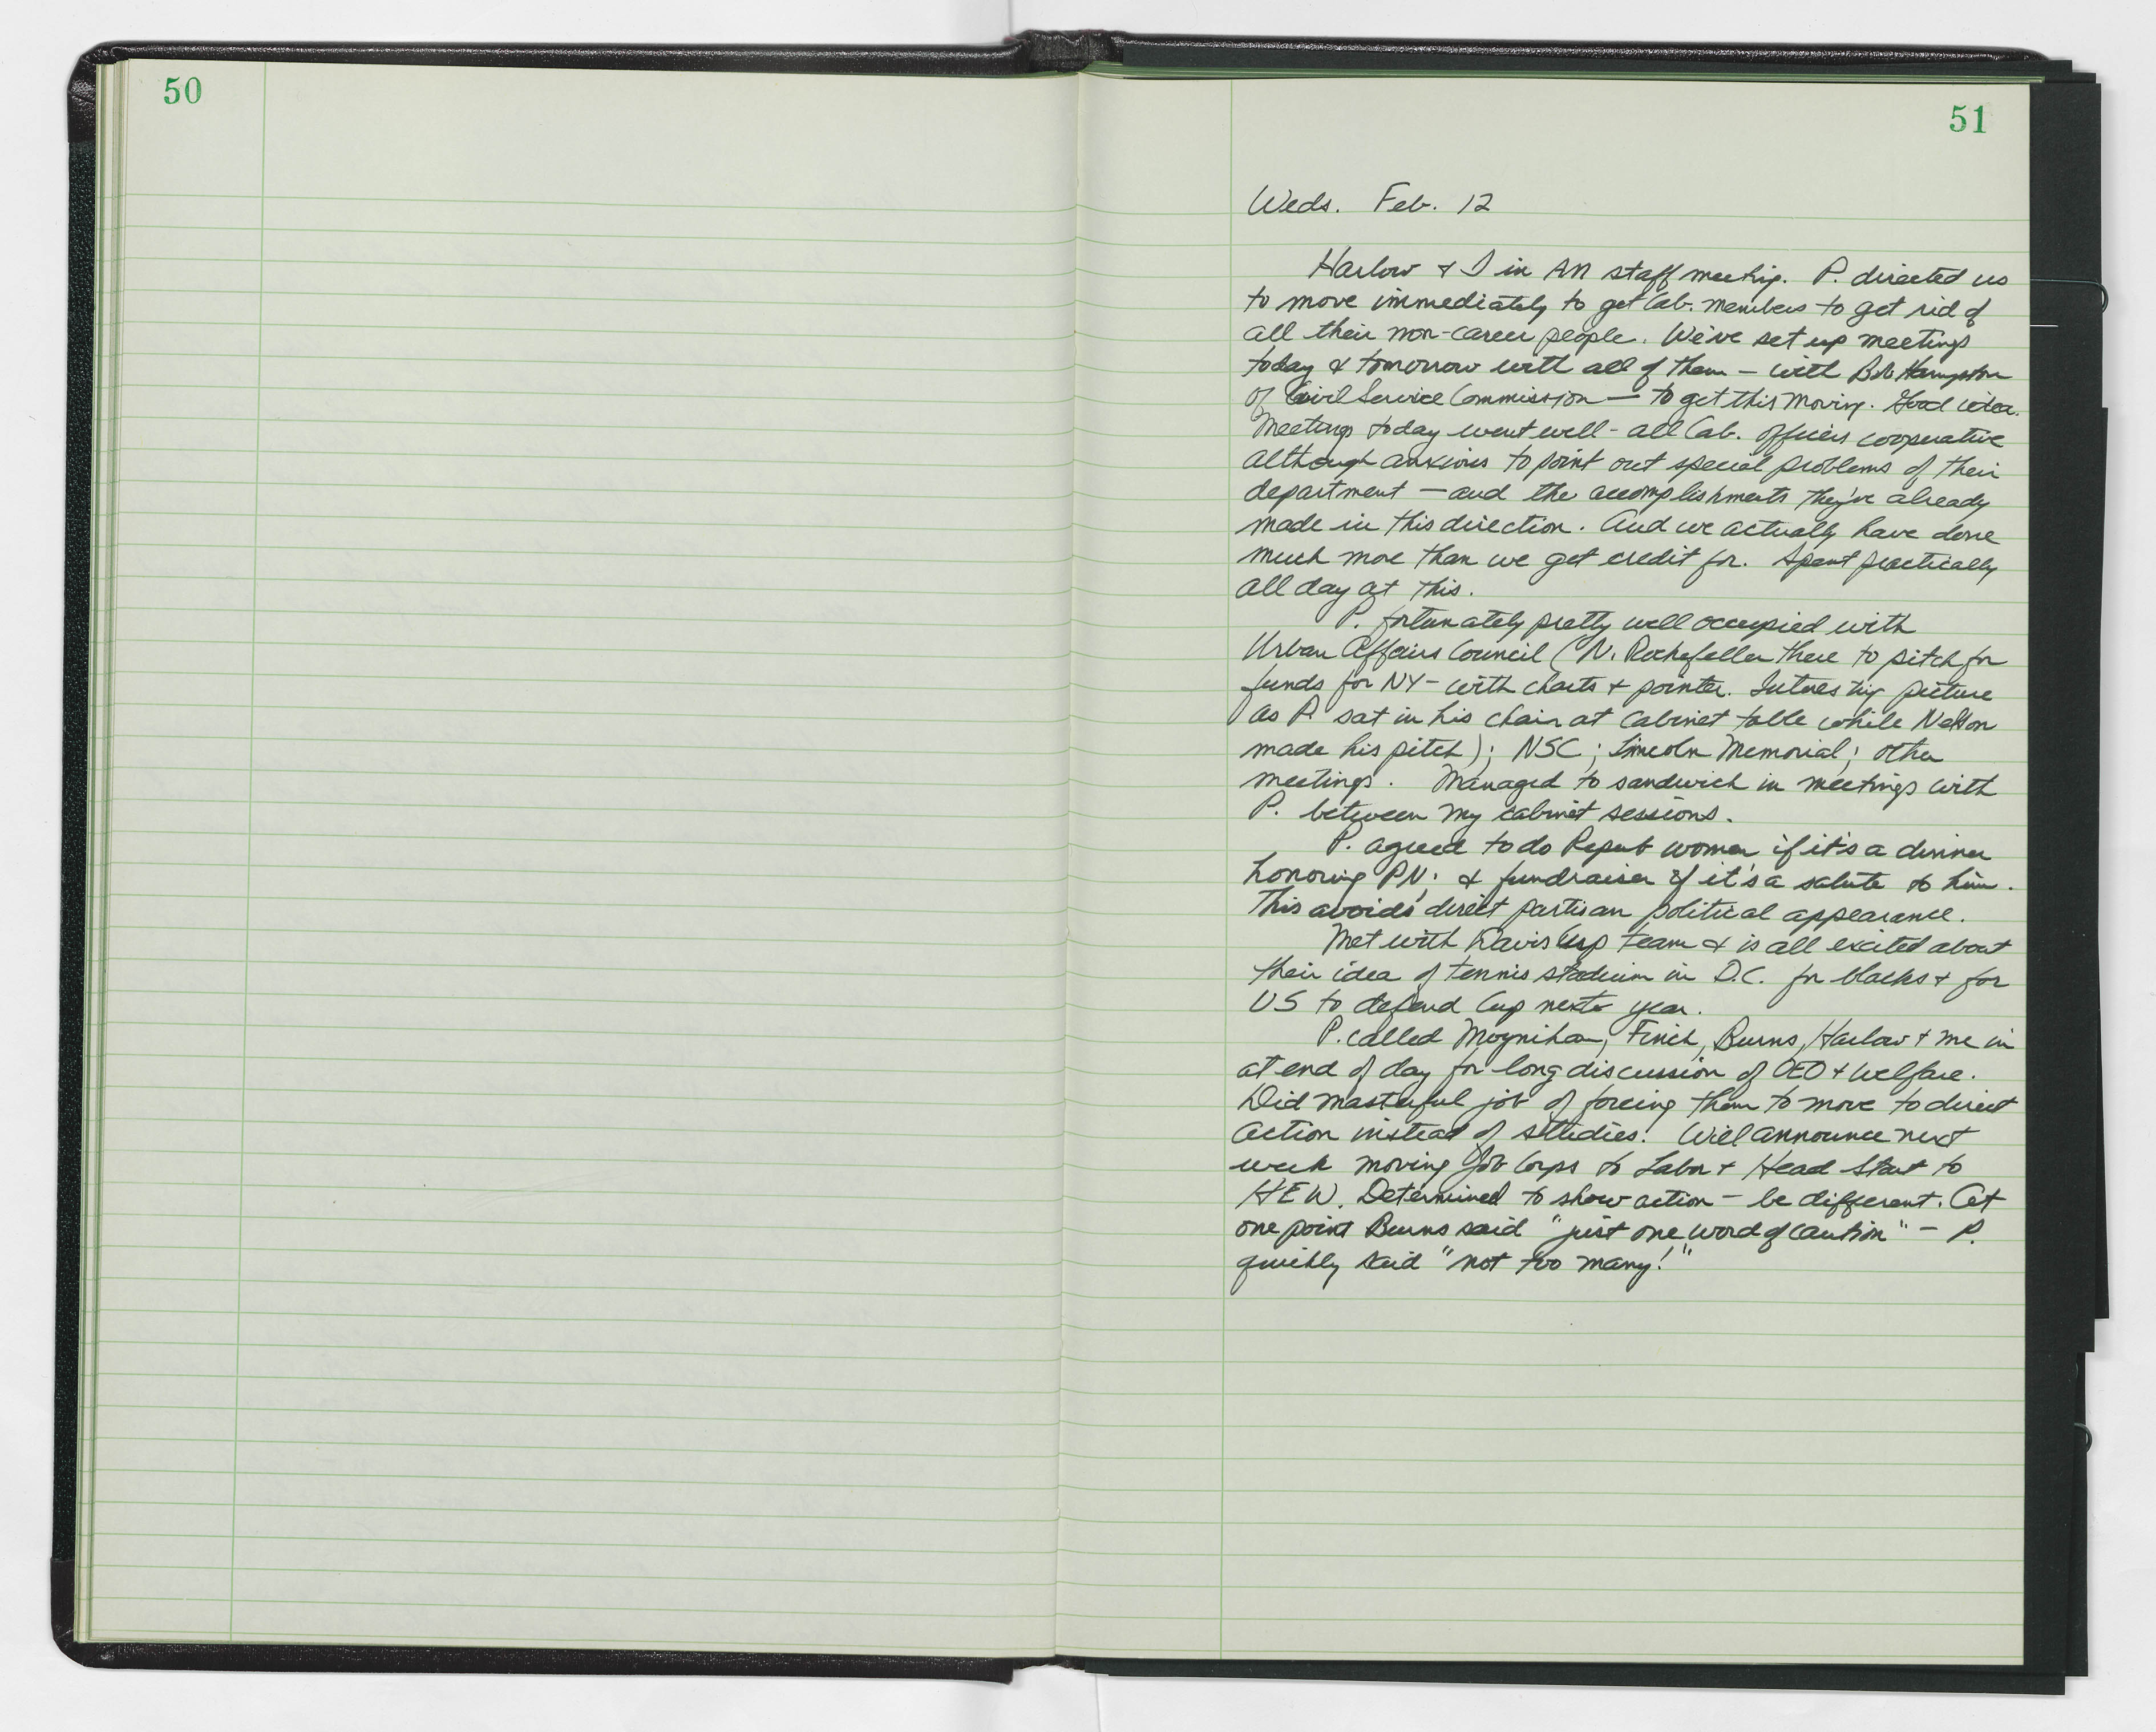 50
51
Weds. Feb. 12
Harlow & I in AM staff meeting. P. directed us
to move immediately to get Cab. members to get rid of
all their non-career people. We've set up meetings
today & tomorrow with all of them — with Bob Hampton
of Civil Service Commission — to get this moving. Good idea.
Meetings today went well - all Cab. officers cooperative
although anxious to point out special problems of their
department — and the accomplishments they've already
made in this direction. And we actually have done
much more than we get credit for. Spent practically
all day at this.
P. fortunately pretty well occupied with
Urban Affairs Council (N. Rockefeller there to pitch for
funds for NY - with charts & pointer. Interesting picture
as P. sat in his chair at Cabinet table while Nelson
made his pitch); NSC; Lincoln Memorial; other
meetings. Managed to sandwich in meetings with
P. between my cabinet sessions.
P. agreed to do Repub women if it's a dinner
honoring PN; & fundraiser if it's a salute to him.
This avoids direct partisan political appearance.
Met with Davis Cup team & is all excited about
their idea of tennis stadium in D.C. for blacks & for
US to defend Cup next year.
P. called Moynihan, Finch, Burns, Harlow & me in
at end of day for long discussion of OEO & welfare.
Did masterful job of forcing them to move to direct
action instead of studies. Will announce next
week moving Job Corps to Labor & Head Start to
HEW. Determined to show action - be different. At
one point Burns said "just one word of caution" - P.
quickly said "not too many!"